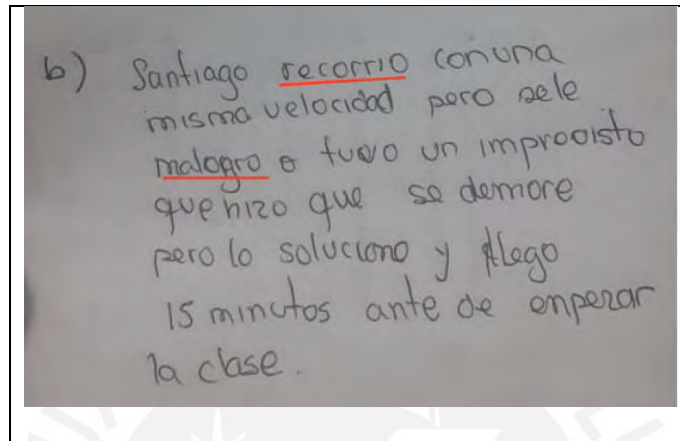 b) Santiago recorrio con una
misma velocidad pero sele
malogro o tuvo un improvisto
que hizo que se demore
pero lo soluciono y llego
15 minutos ante de enpezar
la clase.